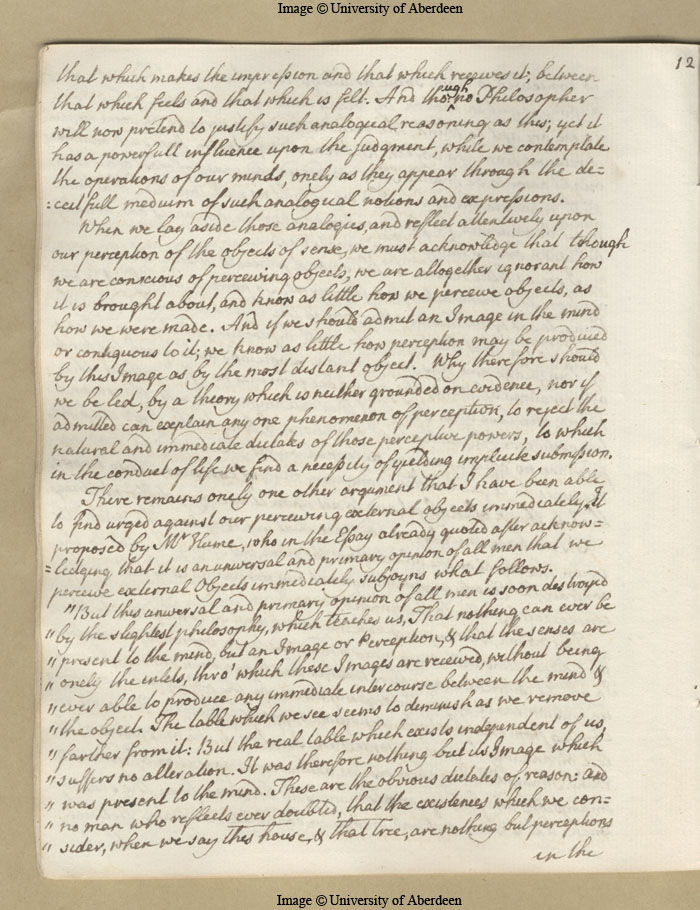 Image © University of Aberdeen
12
that which makes the impression and that which receives it; between
that which feels and that which is felt. And though no Philosopher
will now pretend to justify such analogical reasoning as this; yet it
has a powerfull influence upon the judgment, while we contemplate
the operations of our minds, onely as they appear through the de=
=ceitfull medium of such analogical notions and expressions.
When we lay aside those analogies, and reflect attentively upon
our perception of the objects of sense, we must acknowledge that though
we are conscious of perceiving objects, we are altogether ignorant how
it is brought about, and know as little how we perceive objects, as
how we were made. And if we should admit an Image in the mind
or contiguous to it; we know as little how perception may be produced
by this Image as by the most distant object. Why therefore should
we be led, by a theory which is neither grounded on evidence, nor if
admitted can explain any one phenomenon of perception, to reject the
natural and immediate dictates of those perceptive powers, to which
in the conduct of life we find a necessity of yielding implicit submission.
There remains onely one other argument that I have been able
to find urged against our perceiving external objects immediately. It
proposed by Mr Hume, who in the Essay already quoted after acknow=
=ledging that it is an universal and primary opinion of all men that we
perceive external Objects immediately subjoyns what follows.
"But this universal and primary opinion of all men is soon destroyed
" by the slightest philosophy, which teaches us, That nothing can ever be
" present to the mind, but an Image or Perception, & that the senses are
" onely the inlets, thro' which these Images are received, without being
" ever able to produce any immediate intercourse between the mind &
" the object. The table which we see seems to diminish as we remove
" farther from it: But the real table which exists independent of us,
" suffers no alteration. It was therefore nothing but its Image which
" was present to the mind. These are the obvious dictates of reason: and
" no man who reflects ever doubted, that the existences which we con=
" sider, when we say this house, & that tree, are nothing but perceptions
in the
Image © University of Aberdeen